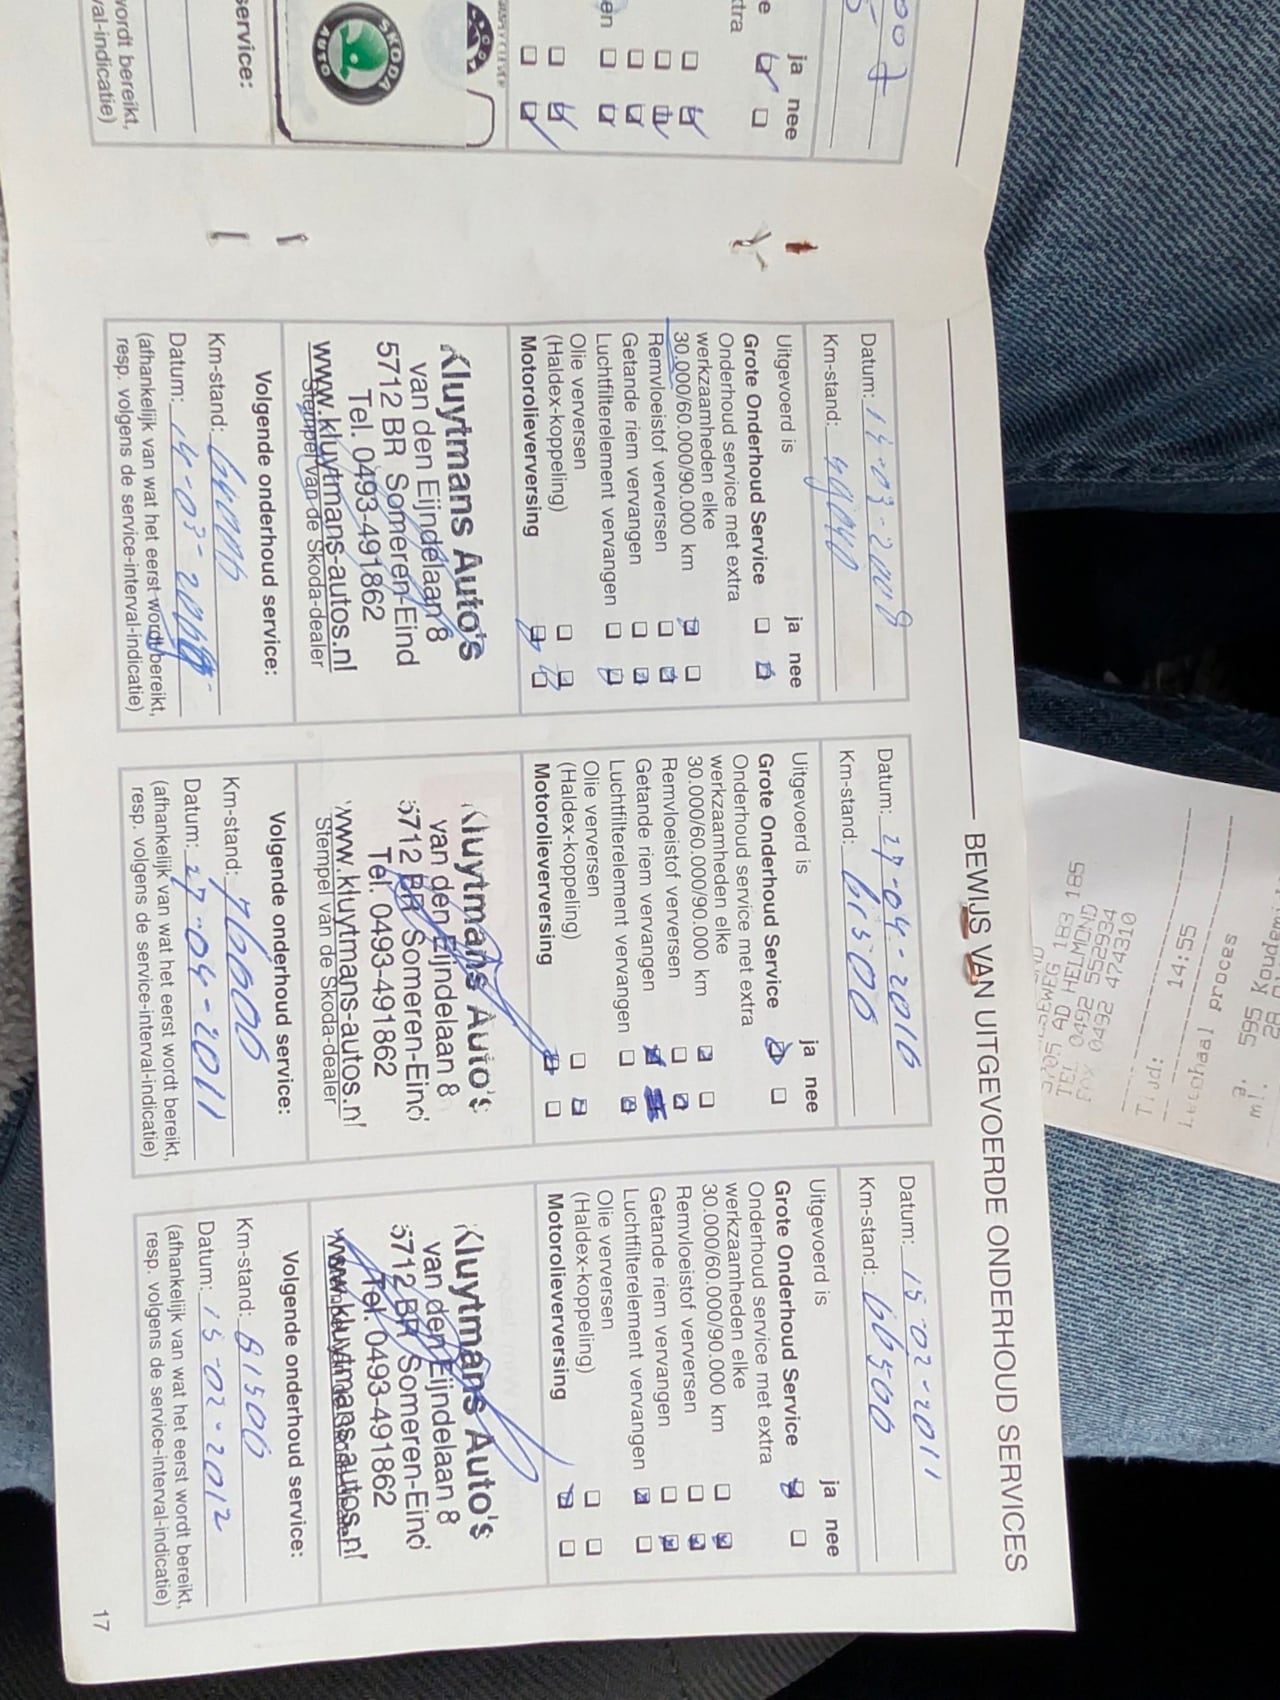 BEWIJS VAN UITGEVOERDE ONDERHOUD SERVICES
wordt bereikt,
val-indicatie)
service:
SKODA
AUTO
en
xtra
e
ja nee
Datum: 14-03-2008
Km-stand: 49040
Uitgevoerd is
ja nee
Grote Onderhoud Service
Onderhoud service met extra
werkzaamheden elke
30.000/60.000/90.000 km
Remvloeistof verversen
Getande riem vervangen
Luchtfilterelement vervangen
Olie verversen
(Haldex-koppeling)
Motorolieverversing
Kluytmans Auto's
van den Eijndelaan 8
5712 BR Someren-Eind
Tel. 0493-491862
www.kluytmans-autos.nl
Stempel van de Skoda-dealer
Volgende onderhoud service:
Km-stand: 64000
Datum: 14-03-
(afhankelijk van wat het eerst wordt bereikt,
resp. volgens de service-interval-indicatie)
Datum: 27-04-2010
Km-stand: 61500
Uitgevoerd is
ja nee
Grote Onderhoud Service
Onderhoud service met extra
werkzaamheden elke
30.000/60.000/90.000 km
Remvloeistof verversen
Getande riem vervangen
Luchtfilterelement vervangen
Olie verversen
(Haldex-koppeling)
Motorolieverversing
Kluytmans Auto's
van den Eijndelaan 8
5712 BR Someren-Eind
Tel. 0493-491862
www.kluytmans-autos.nl
Stempel van de Skoda-dealer
Volgende onderhoud service:
Km-stand: 76000
Datum: 27-04-2011
(afhankelijk van wat het eerst wordt bereikt,
resp. volgens de service-interval-indicatie)
Datum: 15-02-2011
Km-stand: 66500
Uitgevoerd is
ja nee
Grote Onderhoud Service
Onderhoud service met extra
werkzaamheden elke
30.000/60.000/90.000 km
Remvloeistof verversen
Getande riem vervangen
Luchtfilterelement vervangen
Olie verversen
(Haldex-koppeling)
Motorolieverversing
Kluytmans Auto's
van den Eijndelaan 8
5712 BR Someren-Eind
Tel. 0493-491862
www.kluytmans-autos.nl
Volgende onderhoud service:
Km-stand: 81500
Datum: 15-02-2012
(afhankelijk van wat het eerst wordt bereikt,
resp. volgens de service-interval-indicatie)
17
HELMOND
TEL 0492 552934
FAX 0492 474310
Tijd: 14:55